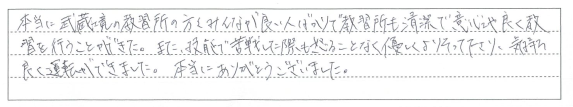 本当に武蔵境の教習所の方もみんなが良い人ばかりで教習所も清潔で意心地良く教
習を行うことができた。また、技能で苦戦した際も怒ることなく優しくより添って下さり、気持ち
良く運転ができました。本当にありがとうございました。